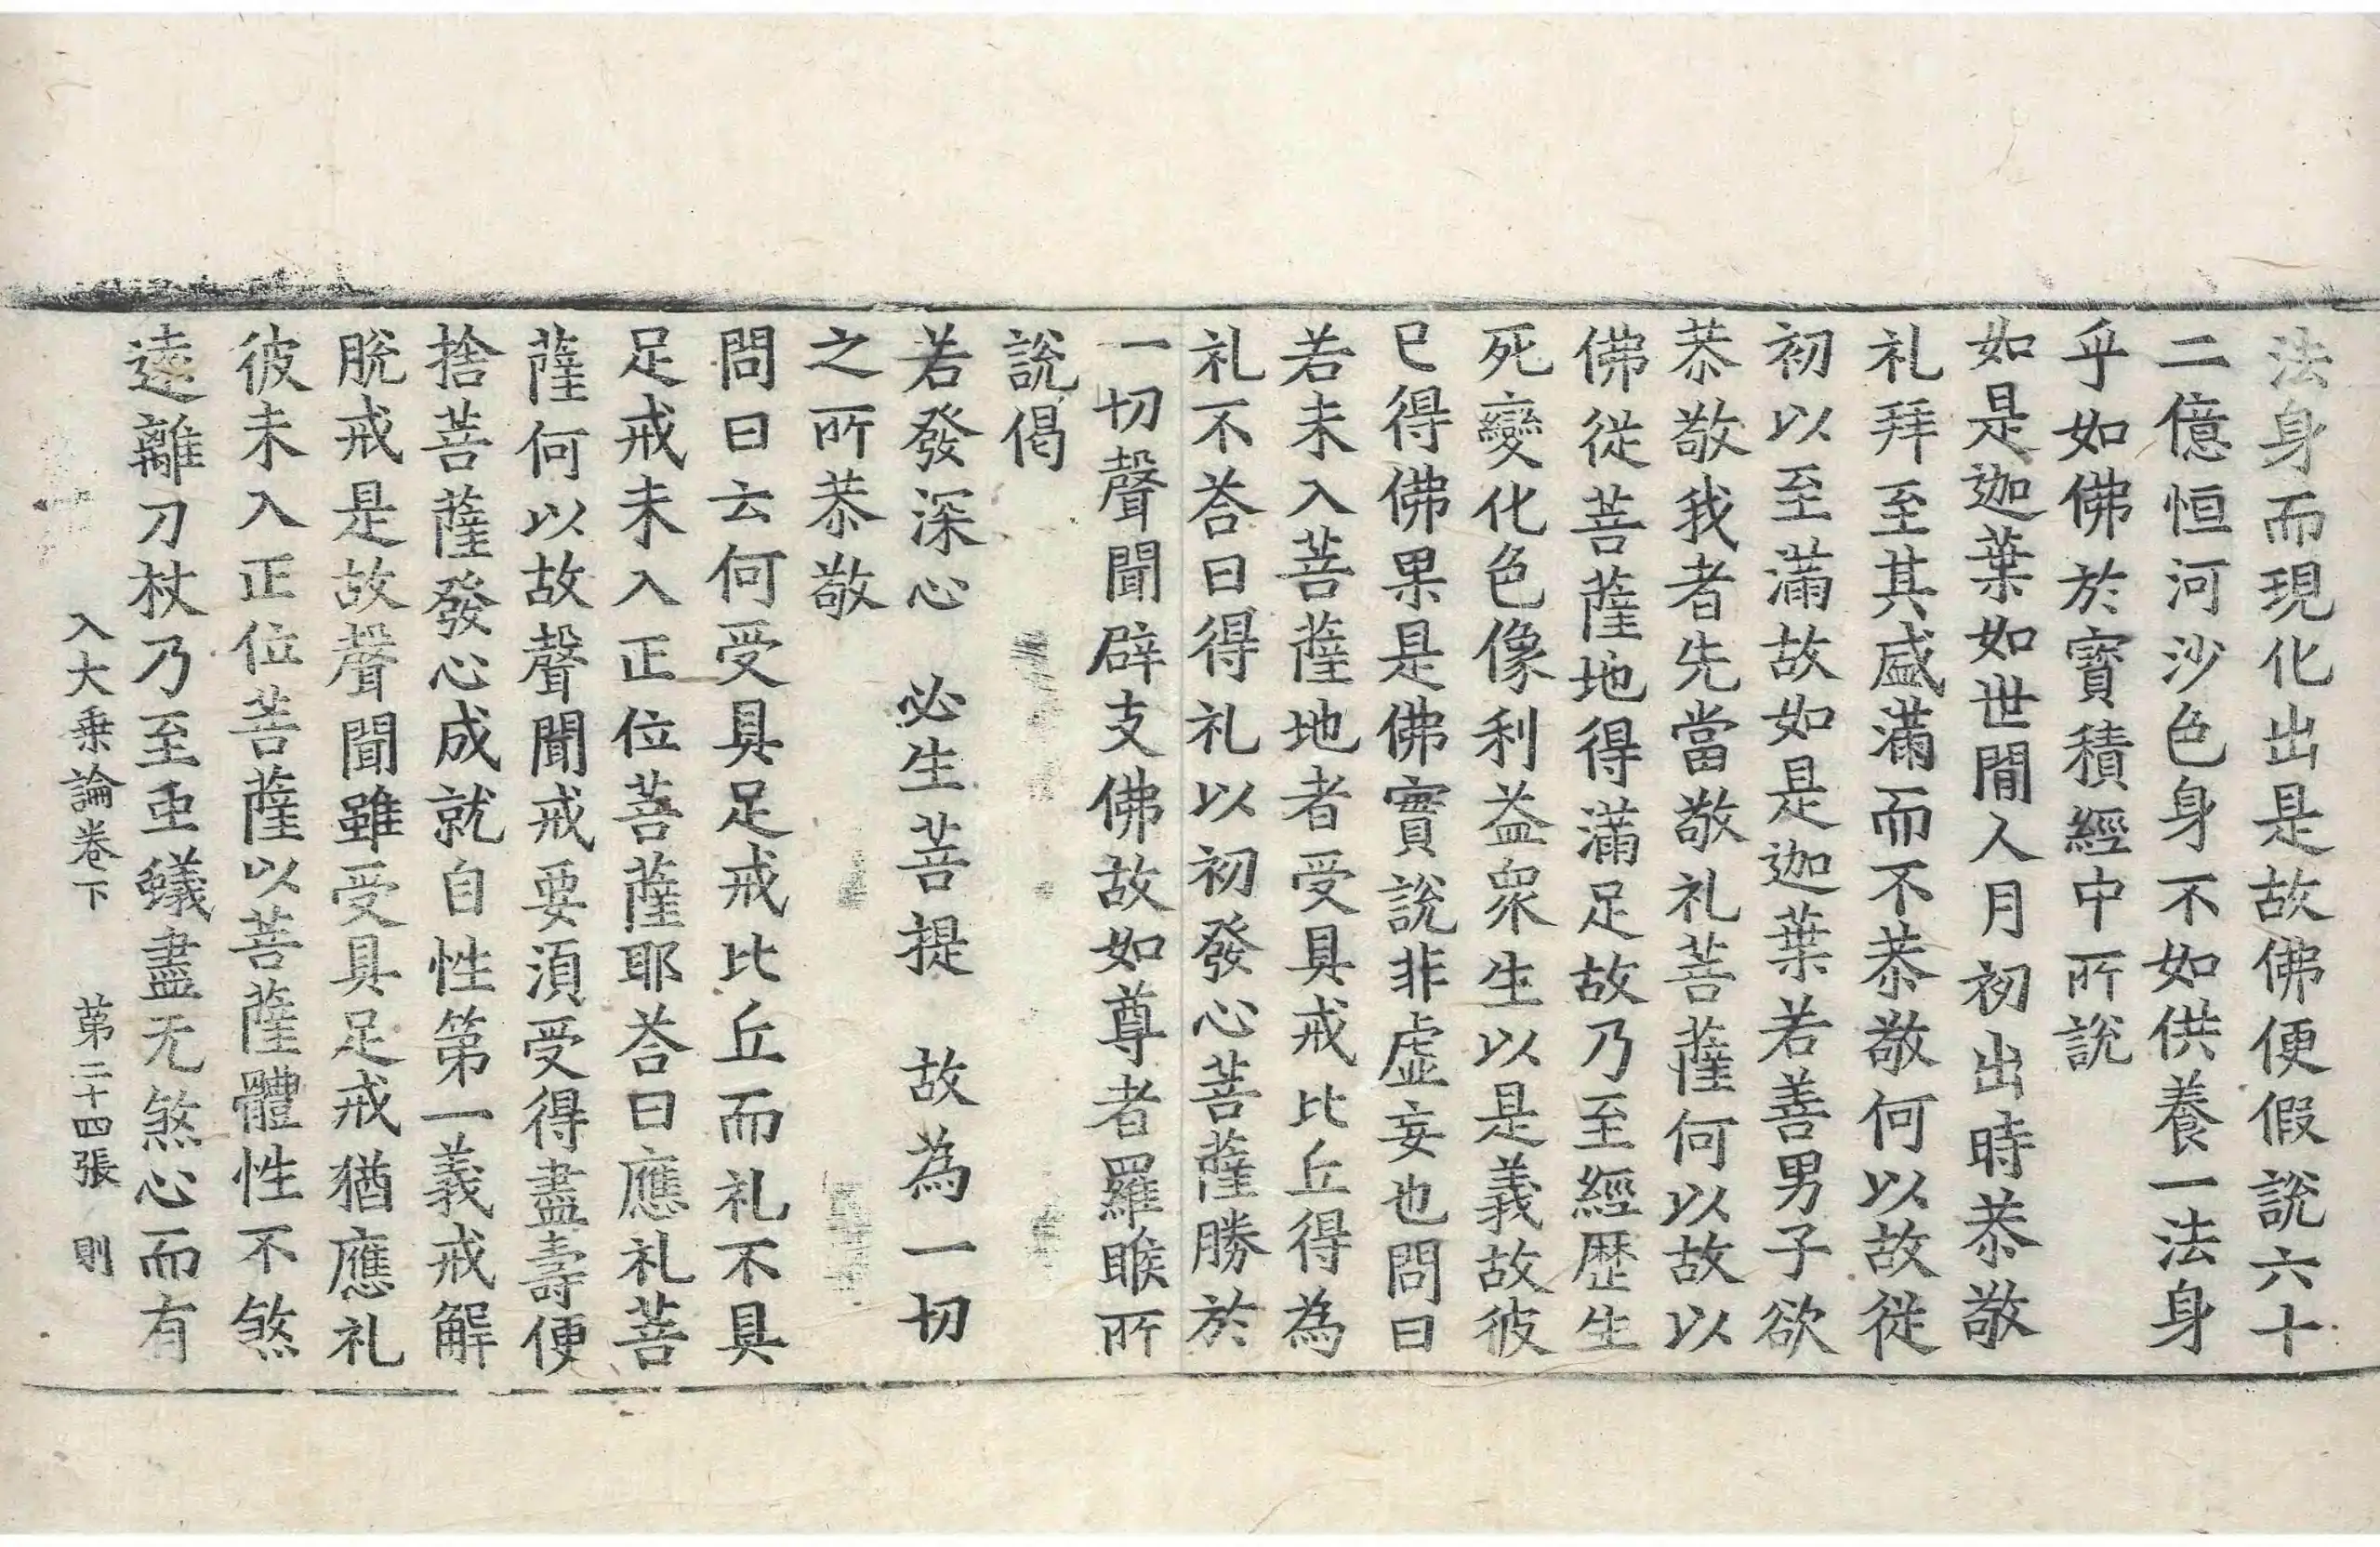 法身而現化出是故佛便假說六十
二億恒河沙色身不如供養一法身
乎如佛於寶積經中所說
如是迦葉如世間人月初出時恭敬
礼拜至其盛滿而不恭敬何以故従
初以至滿故如是迦葉若善男子欲
恭敬我者先當敬礼菩薩何以故以
佛従菩薩地得滿足故乃至經歷生
死變化色像利益衆生以是義故彼
已得佛果是佛實說非虛妄也問曰
若未入菩薩地者受具戒比丘得為
礼不荅曰得礼以初發心菩薩勝於
一切聲聞辟支佛故如尊者羅睺所
說偈
若發深心　必生菩提　故為一切
之所恭敬
問曰云何受具足戒比丘而礼不具
足戒未入正位菩薩耶荅曰應礼菩
薩何以故聲聞戒要湏受得盡壽便
捨菩薩發心成就自性第一義戒解
脫戒是故聲聞雖受具足戒猶應礼
彼未入正位菩薩以菩薩體性不煞
逺離刀杖乃至䖝蟻盡无煞心而有
入大乗論卷下　第二十四張　則